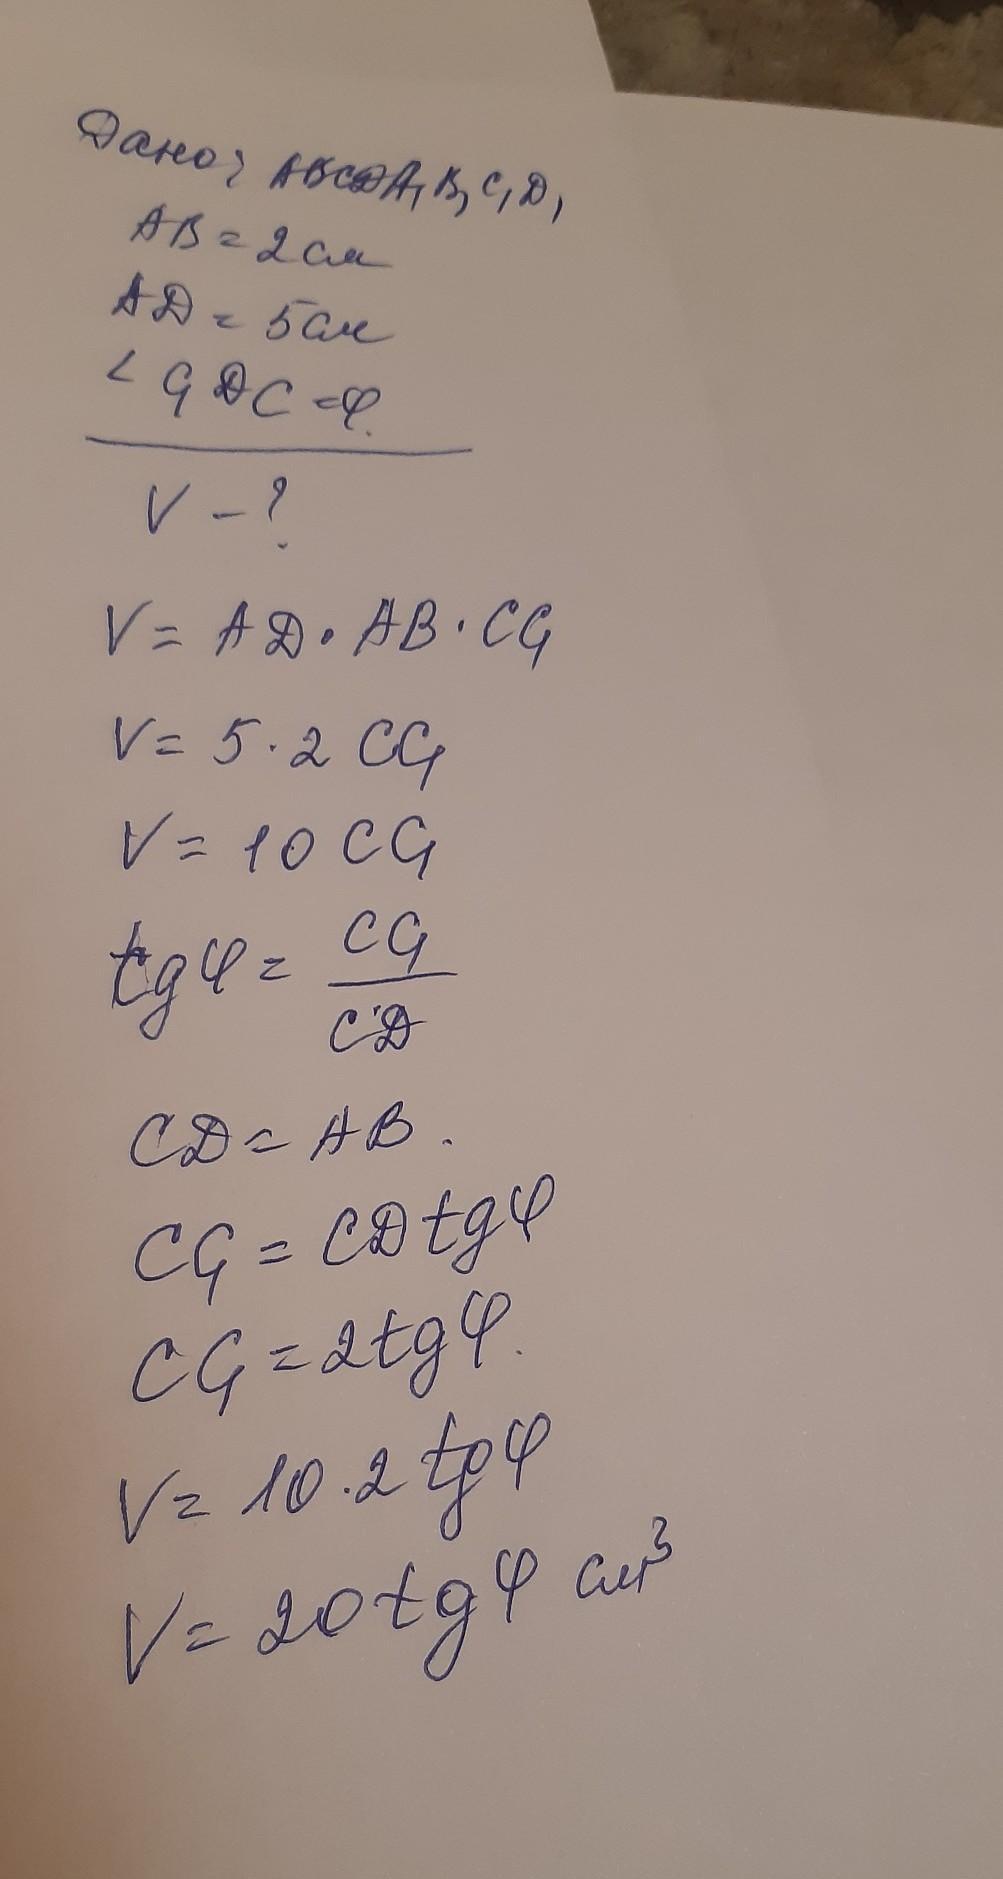 Дано: ABCDA₁B₁C₁D₁
AB = 2 см
AD = 5 см
∠ C₁DC = φ.
V - ?
V = AD · AB · CC₁
V = 5 · 2 CC₁
V = 10 CC₁
tg φ = CC₁ / CD
CD = AB.
CC₁ = CD tg φ
CC₁ = 2 tg φ.
V = 10 · 2 tg φ
V = 20 tg φ см³